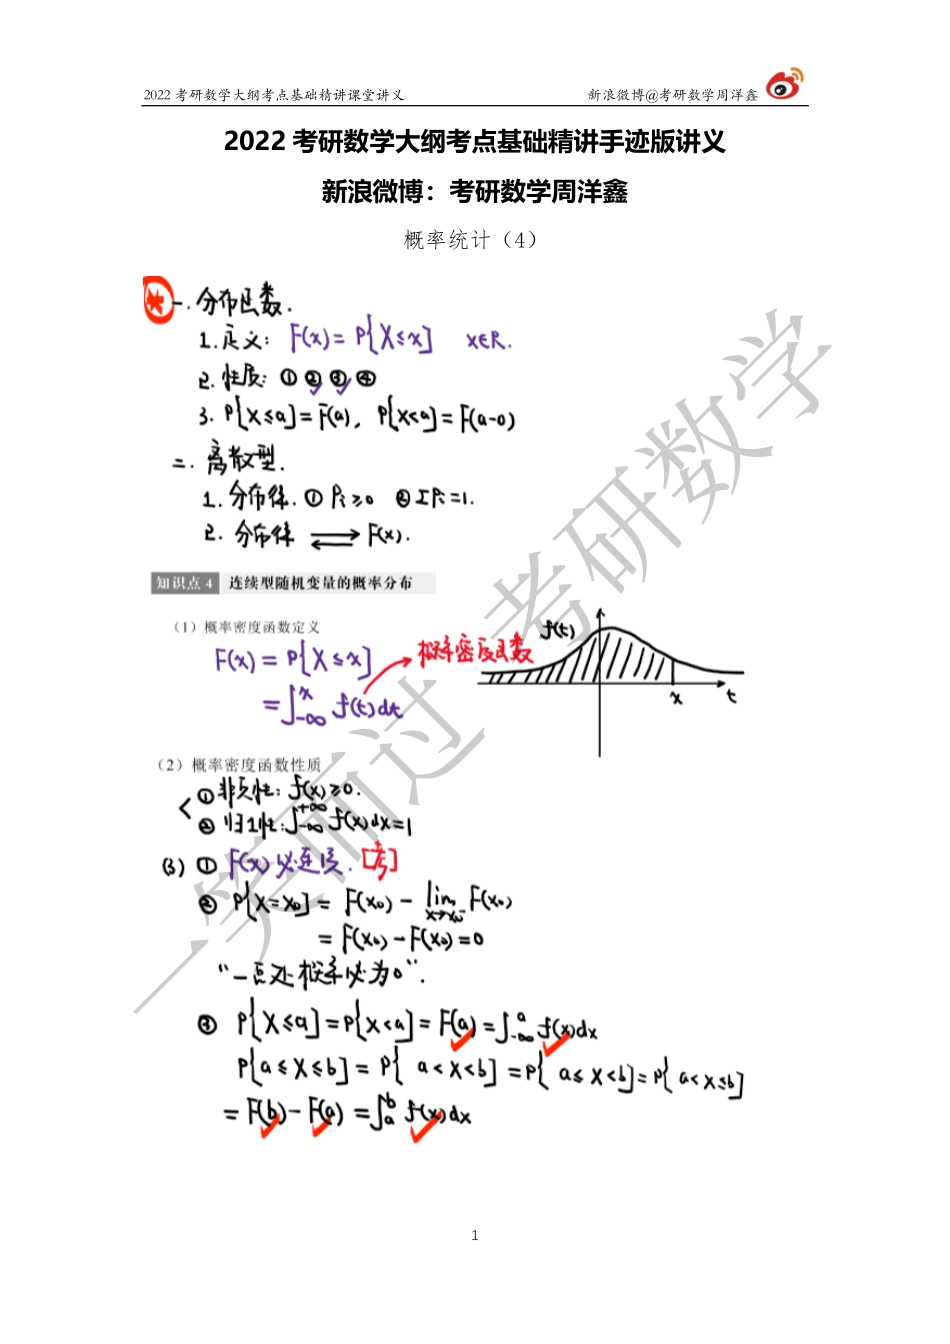 2022 考研数学大纲考点基础精讲课堂讲义 新浪微博@考研数学周洋鑫
2022 考研数学大纲考点基础精讲手迹版讲义
新浪微博：考研数学周洋鑫
概率统计（4）
一. 分布函数.
1. 定义: F(x) = P{X≤x} x∈R.
2. 性质: ① ② ③ ④
3. P{X≤a} = F(a), P{X<a} = F(a-0)
二. 离散型.
1. 分布律. ① Pi≥0 ② ΣPi=1.
2. 分布律 ⇌ F(x).
知识点 4 连续型随机变量的概率分布
（1）概率密度函数定义
F(x) = P{X≤x} → 概率密度函数
= ∫_{-∞}^{x} f(t)dt
f(t)
x t
（2）概率密度函数性质
① 非负性: f(x)≥0.
② 归1性: ∫_{-∞}^{+∞} f(x)dx=1
(3) ① F(x)必连续. [考]
② P{X=x₀} = F(x₀) - lim_{x→x₀⁻} F(x)
= F(x₀) - F(x₀) = 0
“一点处概率必为0”.
③ P{X≤a} = P{X<a} = F(a) = ∫_{-∞}^{a} f(x)dx
P{a≤X≤b} = P{a<X<b} = P{a≤X<b} = P{a<X≤b}
= F(b) - F(a) = ∫_{a}^{b} f(x)dx
一笑而过 考研数学
1